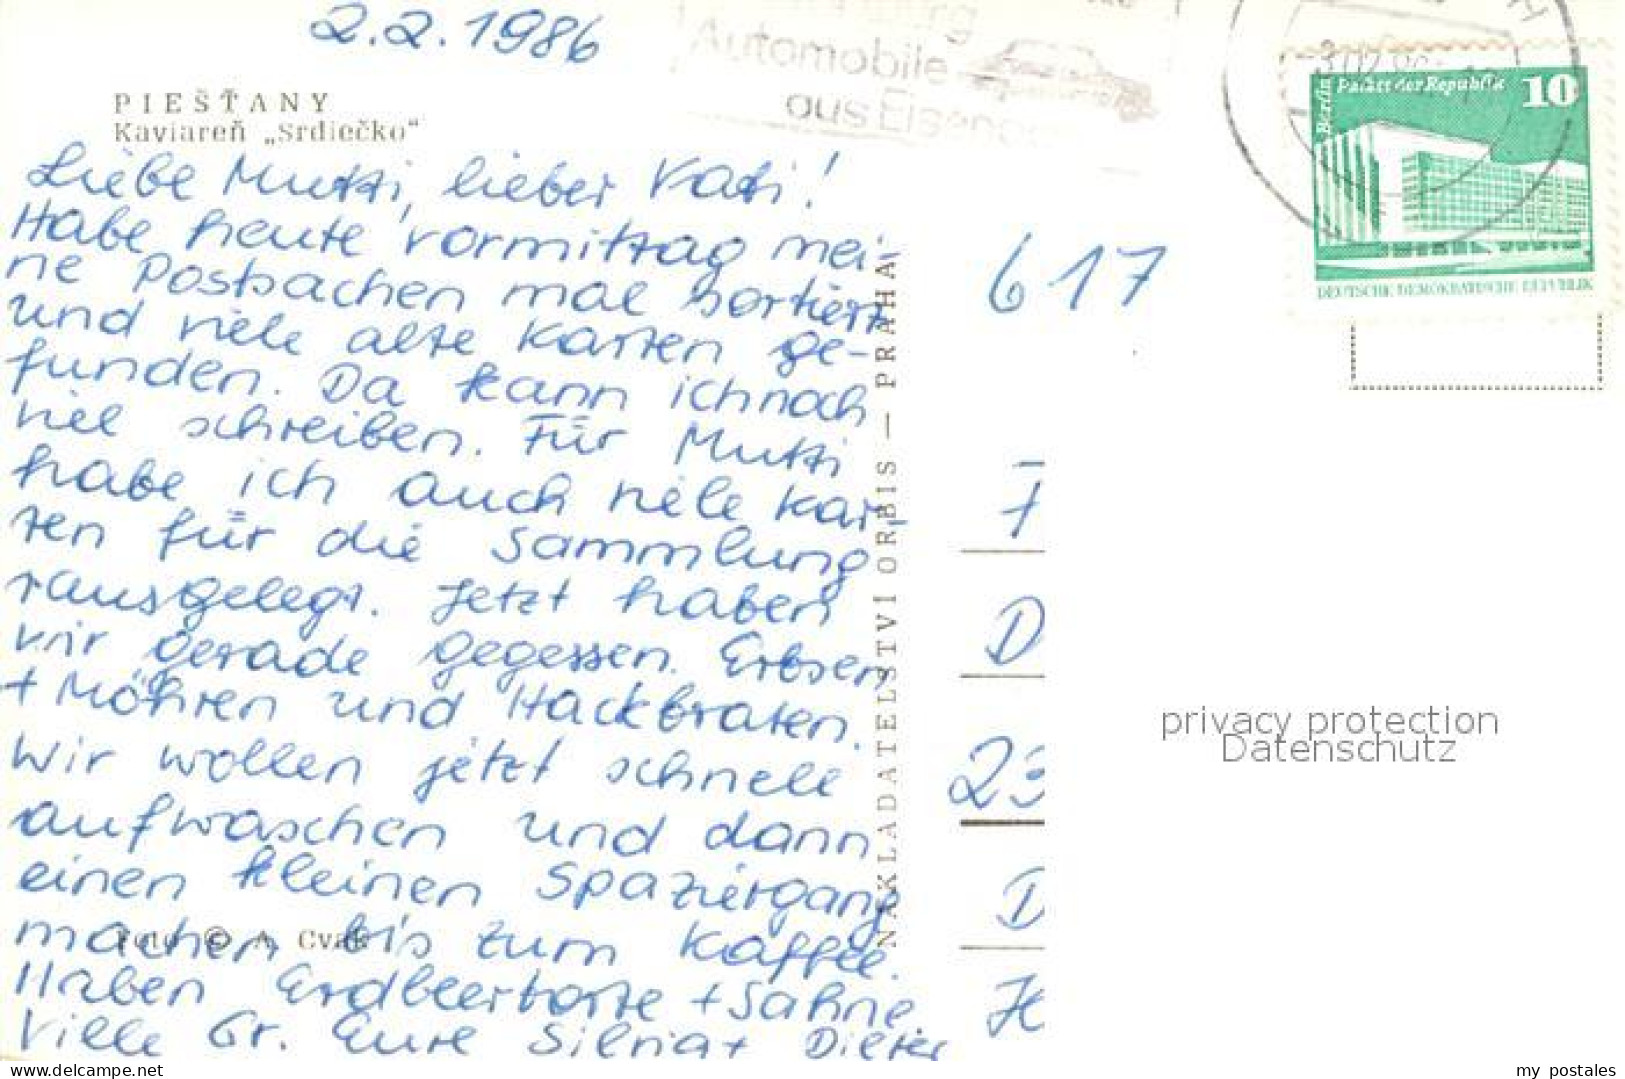 2.2.1986
Automobile
aus
PIEŠŤANY
Kaviareň „Srdiečko“
Liebe Mutti, lieber Kati!
Habe heute vormittag mei-
ne Postsachen mal sortiert
und viele alte Karten ge-
funden. Da kann ich noch
viel schreiben. Für Mutti
habe ich auch viele Kar-
ten für die Sammlung
rausgelegt. Jetzt haben
wir gerade gegessen. Erbsen
+ Möhren und Hackbraten.
Wir wollen jetzt schnell
aufwaschen und dann
einen kleinen Spaziergang
machen bis zum Kaffee.
Haben Erdbeertorte + Sahne
Viele Gr. Eure Silvia + Dieter
Foto © A. Cvak
NAKLADATELSTVÍ ORBIS — PRAHA
617
Berlin
Palast der Republik
10
DEUTSCHE DEMOKRATISCHE REPUBLIK
F
D
23
D
H
privacy protection
Datenschutz
www.delcampe.net
my_postales